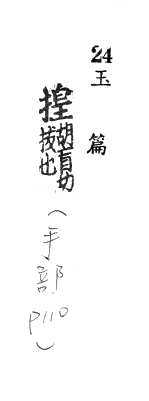 24
玉篇
揘胡盲切
拔也
(手部
P110)